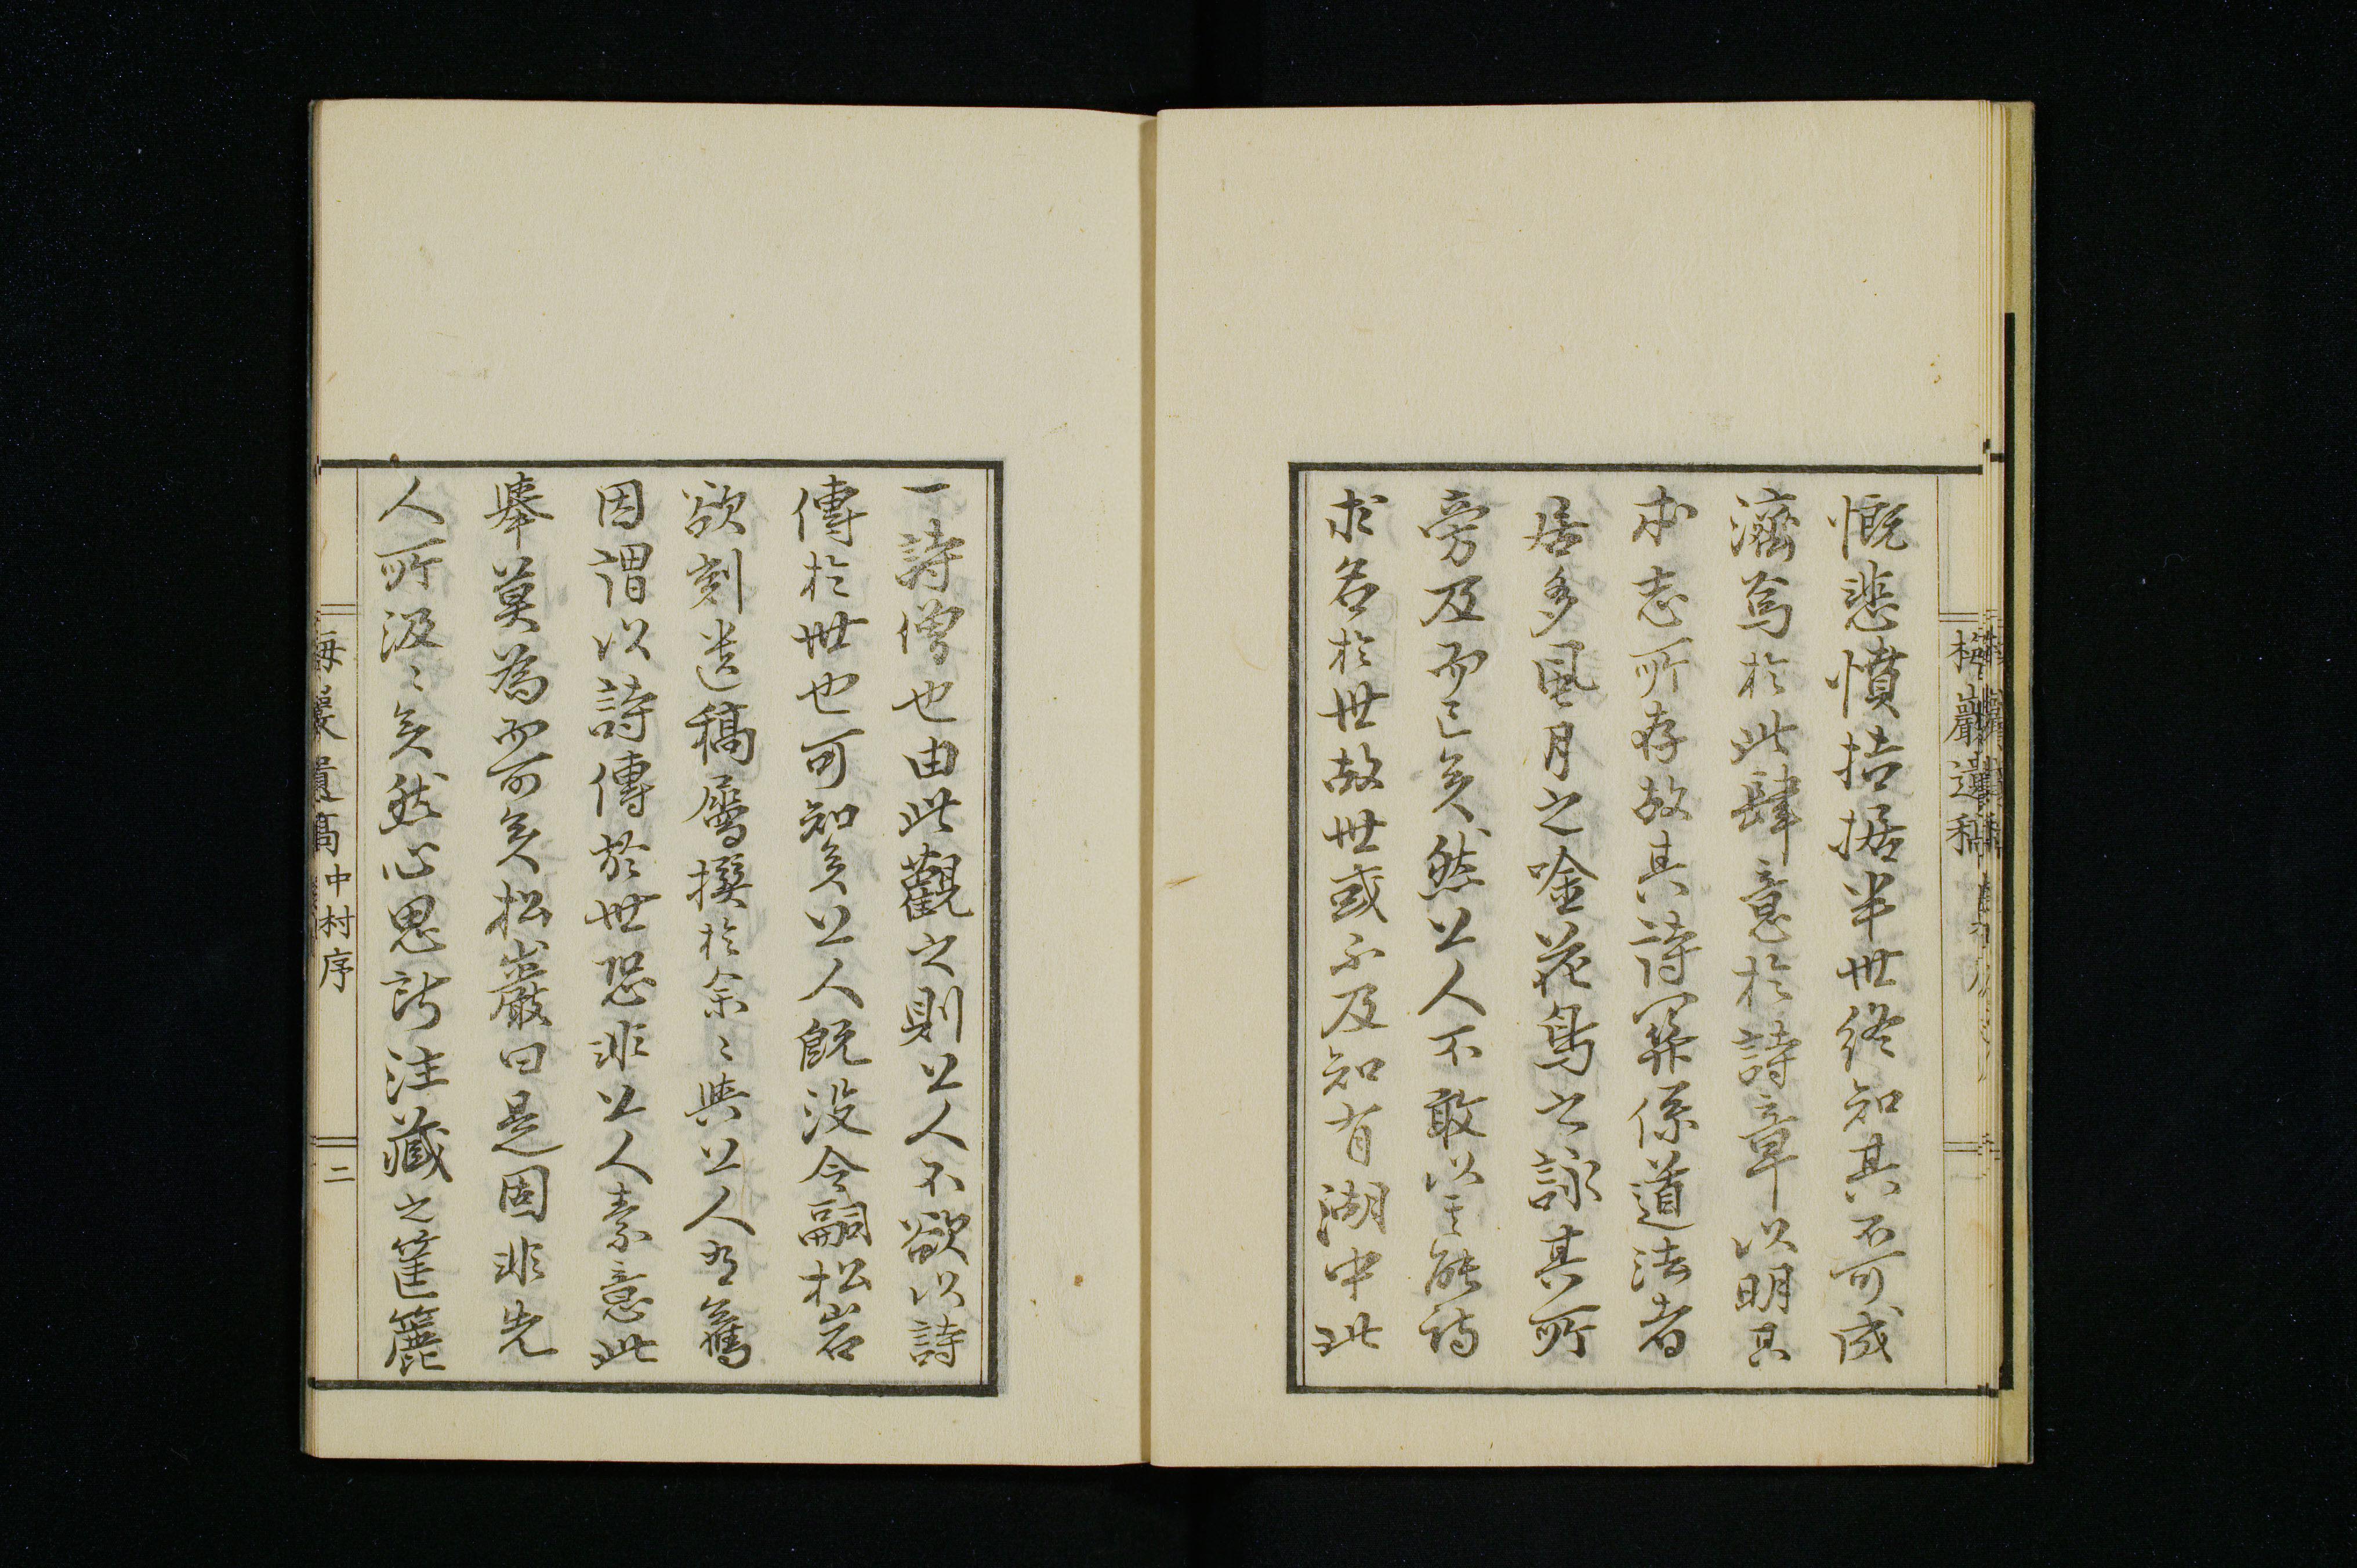 慨悲憤拮据半世終知其不可成
濟焉於此肆意於詩章以明其
本志所存故其詩算係道法者
居多風月之唫花鳥之詠其所
旁及而已矣然上人不敢以其能詩
求名於世故世或不及知有湖中此
一詩僧也由此觀之則上人不欲以詩
傳於世也可知矣上人既没令嗣松岩
欲刻遺稿屬撰於余〻與上人有舊
因謂以詩傳於世恐非上人素意此
舉莫為而可矣松巖曰是固非先
人所汲〻矣然心思所注藏之筐簏
梅巖遺稿
中村序
二